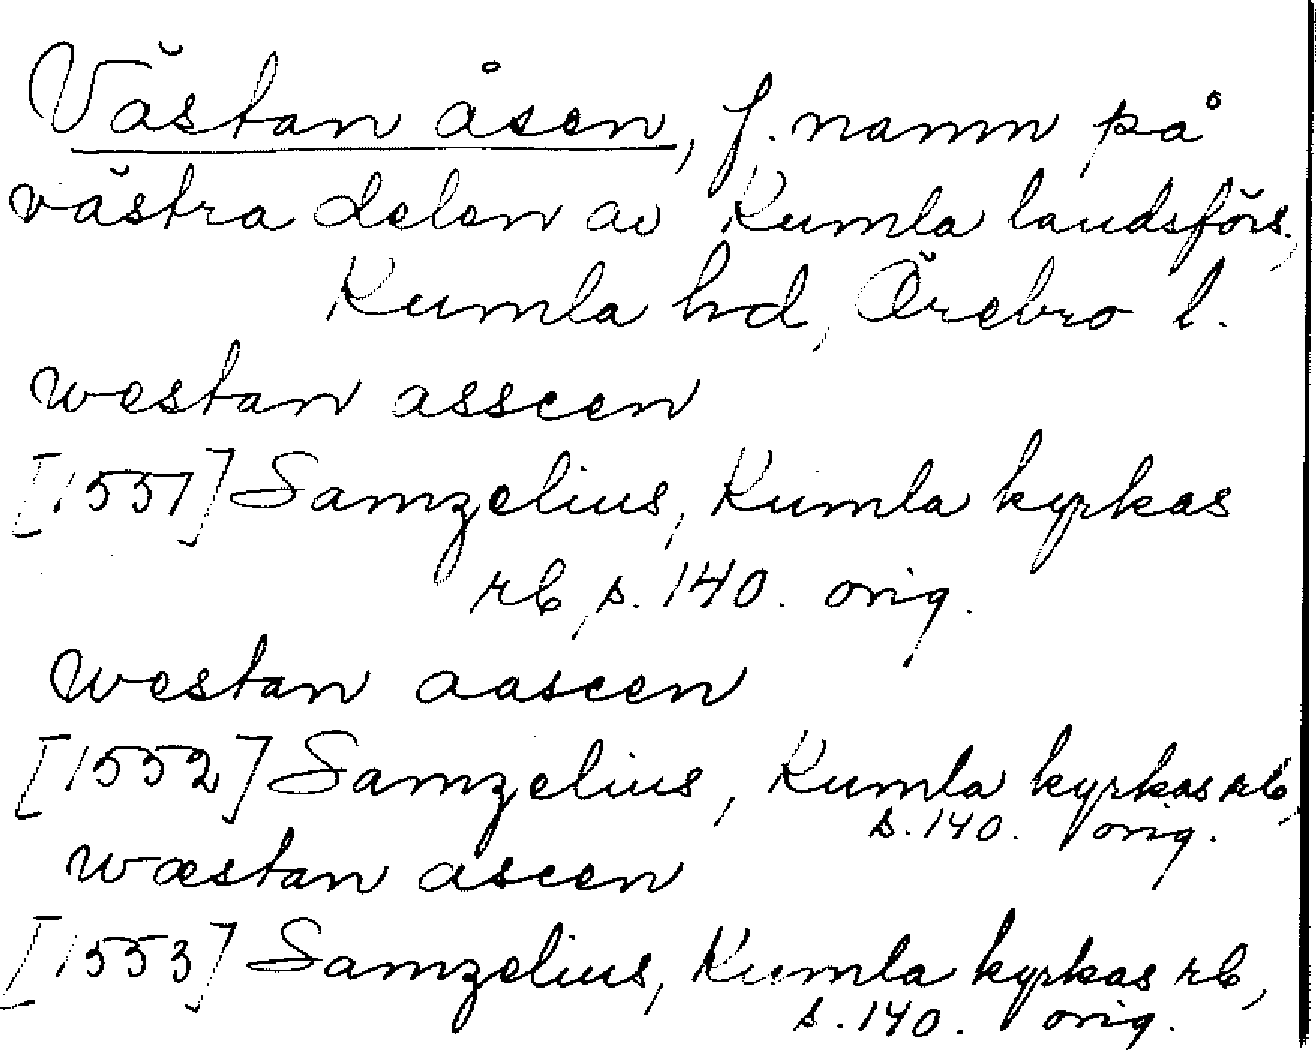 Västan åsen, f. namn på
västra delen av Kumla landsförs.,
Kumla hd, Örebro l.
westan asseen
[1551] Samzelius, Kumla kyrkas
rb s. 140. orig.
westan aaseen
[1552] Samzelius, Kumla kyrkas rb,
s. 140. orig.
wæstan aseen
[1553] Samzelius, Kumla kyrkas rb,
s. 140. orig.